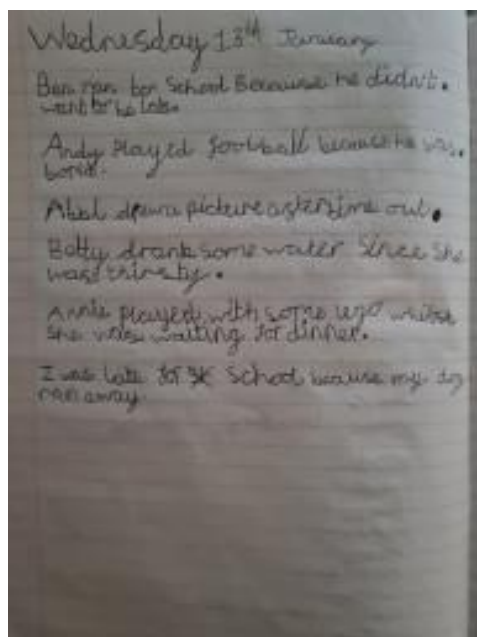 Wednesday 13th January
Ben ran for School Because he didn't.
want to be late.
Andy Played football because he was.
bored.
Abel drew a picture after time out.
Betty drank some water Since She
was thirsty.
Annie played with some lego whilst
She was waiting for dinner.
I was late for School because my dog
ran away